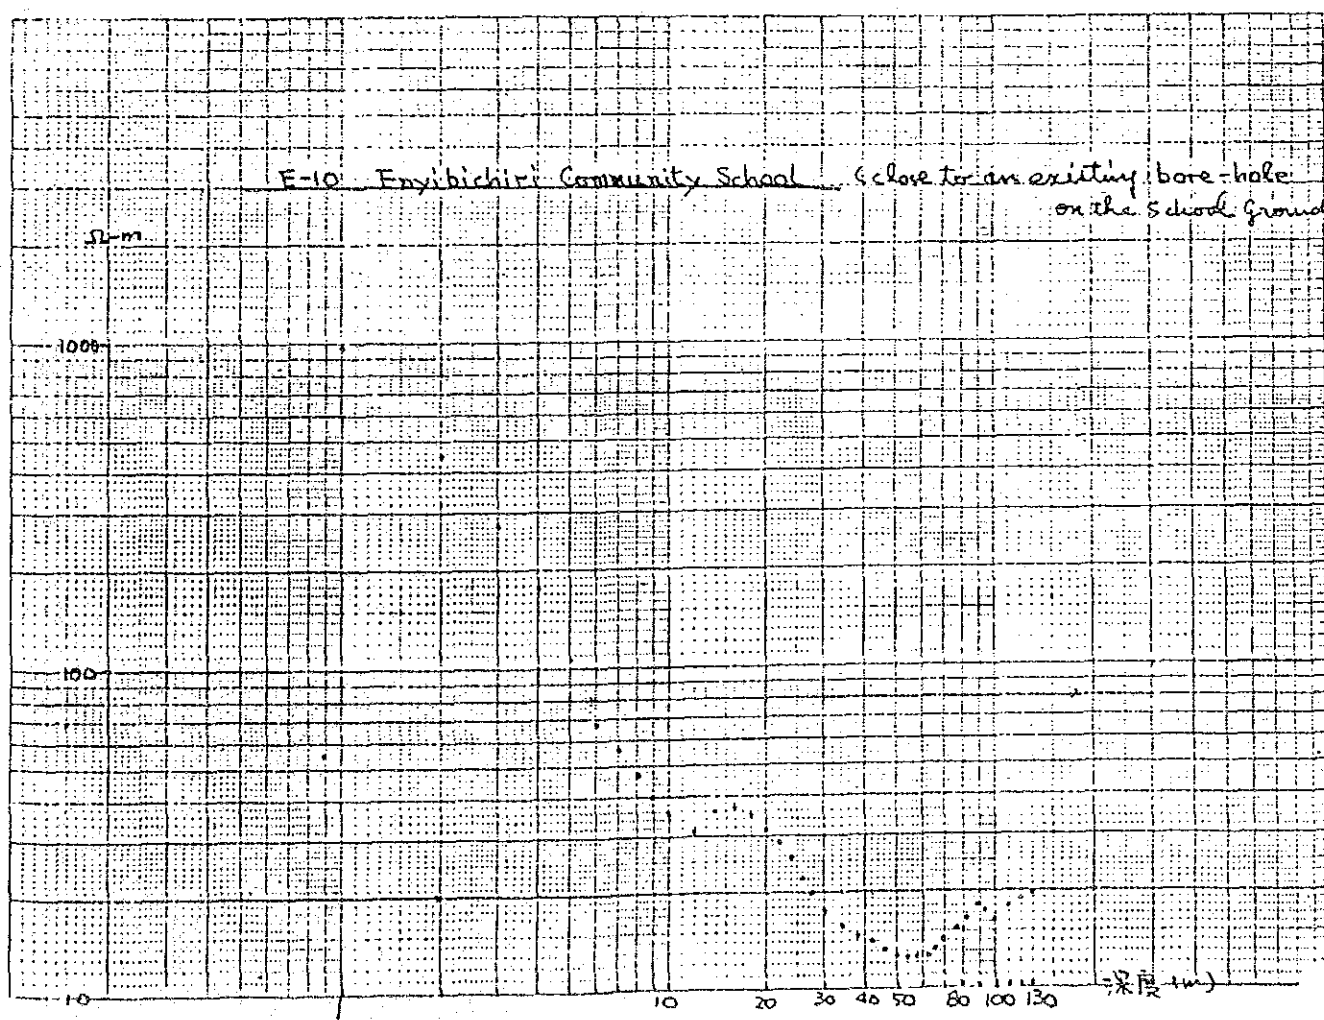 E-10 Enyibichiri Community School (close to an existing bore-hole
on the School Ground
Ω-m
1000
100
10
1
10 20 30 40 50 80 100 130 深度 (m)